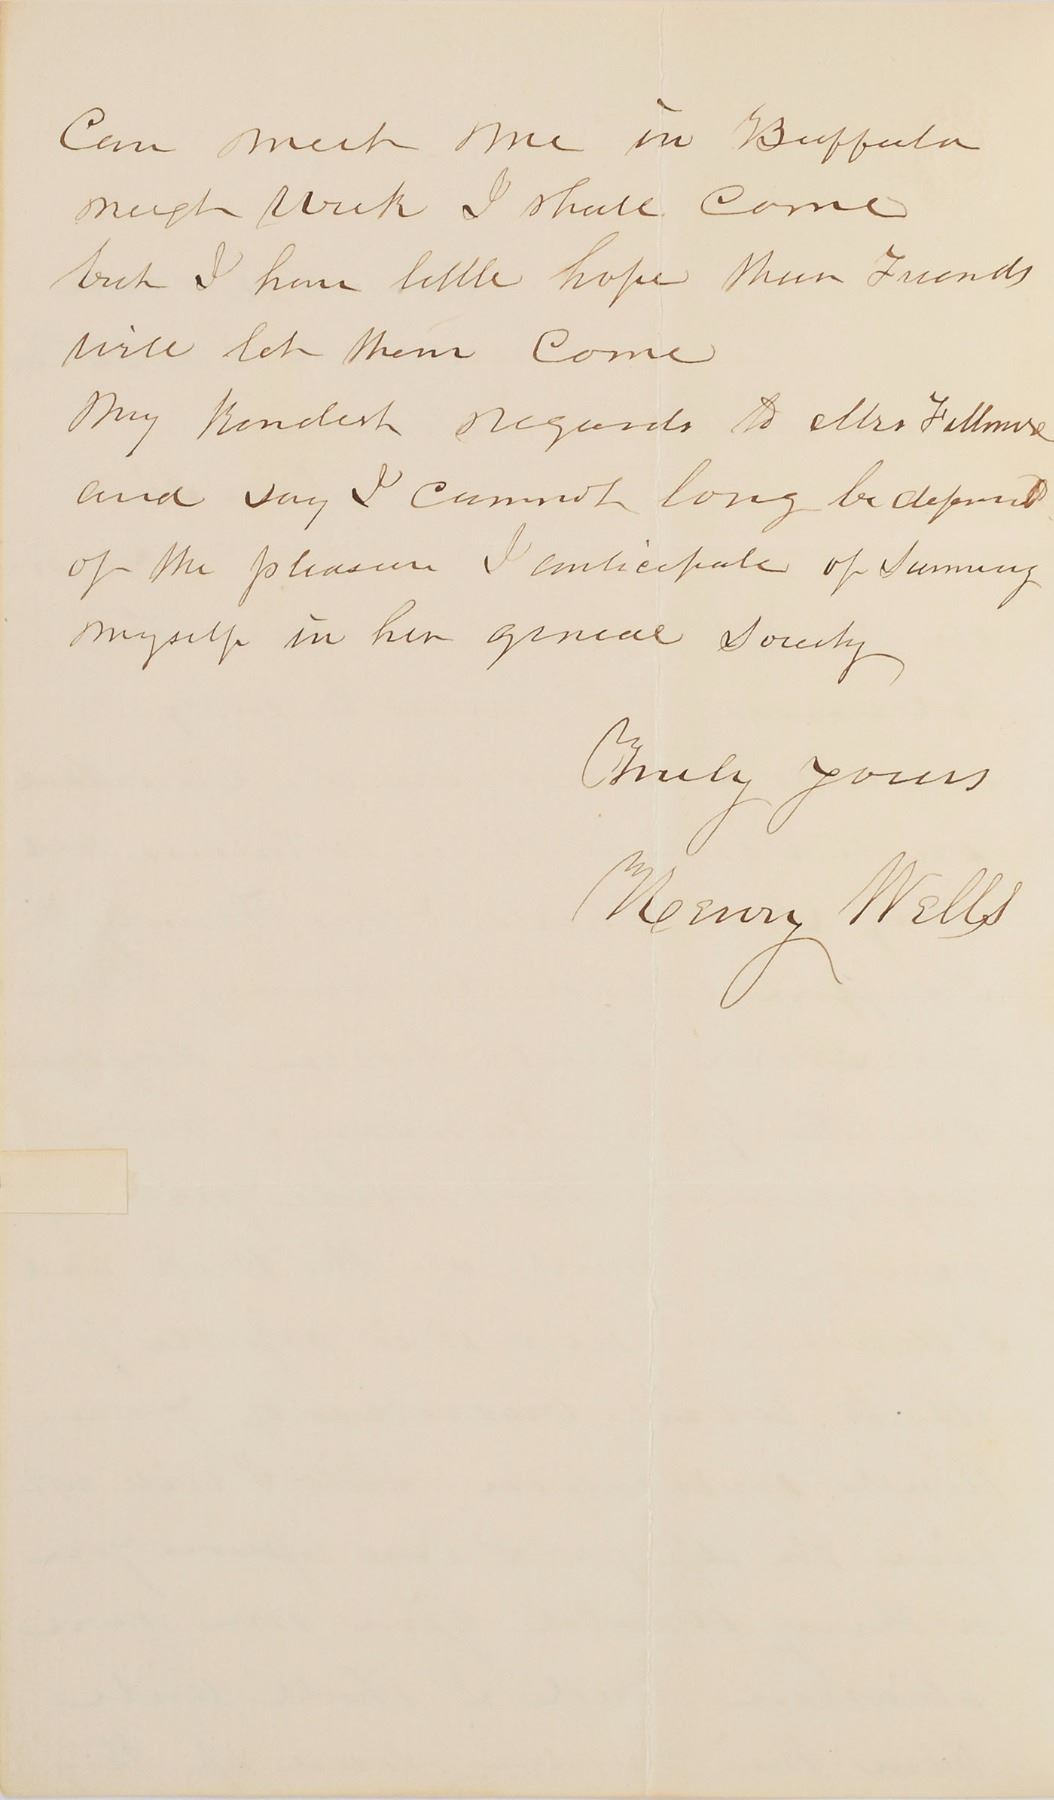 Can meet me in Buffalo
next week I shall come
but I have little hope their Friends
will let them come
My kindest regards to Mrs Fillmore
and say I cannot long be deprived
of the pleasure I anticipate of sunning
myself in her genial society
Truly yours
Henry Wells